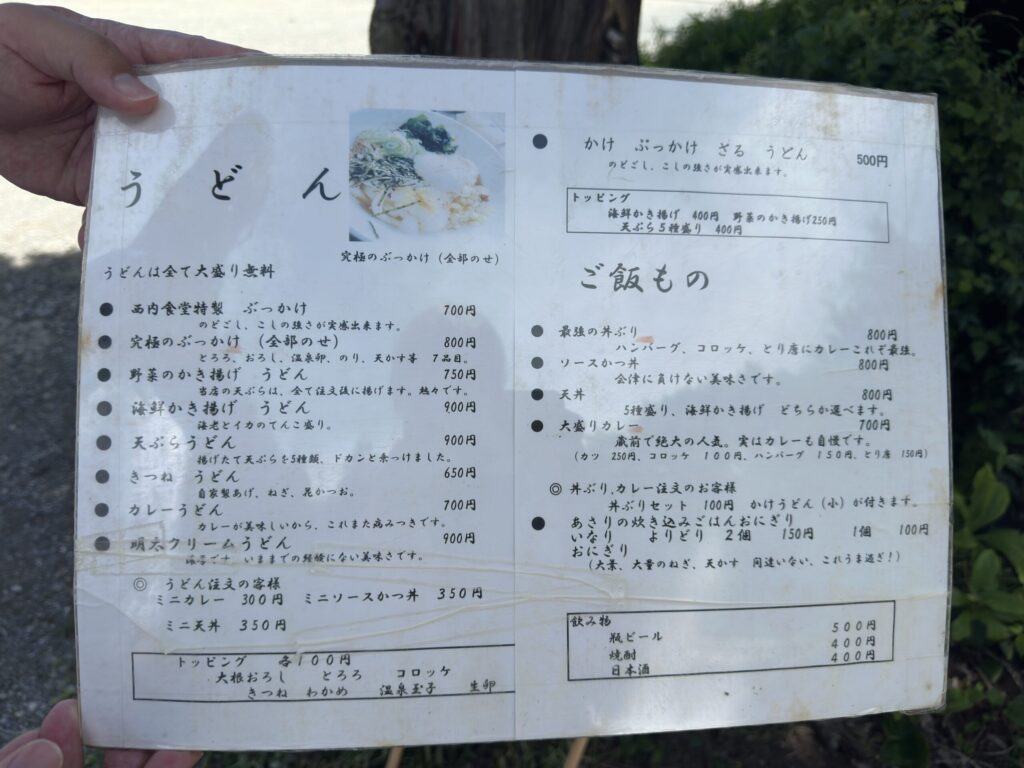 うどん
究極のぶっかけ（全部のせ）
うどんは全て大盛り無料
● 西内食堂特製 ぶっかけ 700円
のどごし、こしの強さが実感出来ます。
● 究極のぶっかけ （全部のせ） 800円
とろろ、おろし、温泉卵、のり、天かす等 7品目。
● 野菜のかき揚げ うどん 750円
当店の天ぷらは、全て注文後に揚げます。熱々です。
● 海鮮かき揚げ うどん 900円
海老とイカのてんこ盛り。
● 天ぷらうどん 900円
揚げたて天ぷらを5種類、ドカンと乗っけました。
● きつね うどん 650円
自家製あげ、ねぎ、昆かつお。
● カレーうどん 700円
カレーが美味しいから、これまた病みつきです。
● 明太クリームうどん 900円
です。いままでの経験にない美味さです。
◎ うどん注文の客様
ミニカレー 300円 ミニソースかつ丼 350円
ミニ天丼 350円
トッピング 各100円
大根おろし とろろ コロッケ
きつね わかめ 温泉玉子 生卵
● かけ ぶっかけ ざる うどん 500円
のどごし、こしの強さが実感出来ます。
トッピング
海鮮かき揚げ 400円 野菜のかき揚げ250円
天ぷら5種盛り 400円
ご飯もの
● 最強の丼ぶり 800円
ハンバーグ、コロッケ、とり唐にカレーこれぞ最強。
● ソースかつ丼 800円
会津に負けない美味さです。
● 天丼 800円
5種盛り、海鮮かき揚げ どちらか選べます。
● 大盛りカレー 700円
蔵前で絶大の人気。実はカレーも自慢です。
（カツ 250円、コロッケ 100円、ハンバーグ 150円、とり唐 150円）
◎ 丼ぶり,カレー注文のお客様
丼ぶりセット 100円 かけうどん（小）が付きます。
● あさりの炊き込みごはんおにぎり
いなり よりどり 2個 150円 1個 100円
おにぎり
（大葉、大量のねぎ、天かす 間違いない、これうま過ぎ！）
飲み物
瓶ビール 500円
焼酎 400円
日本酒 400円